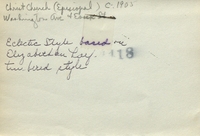 Christ Church (Episcopal) C. 1900
Washington Ave &
Eclectic Style based on
Elizabethan
timbered style
418